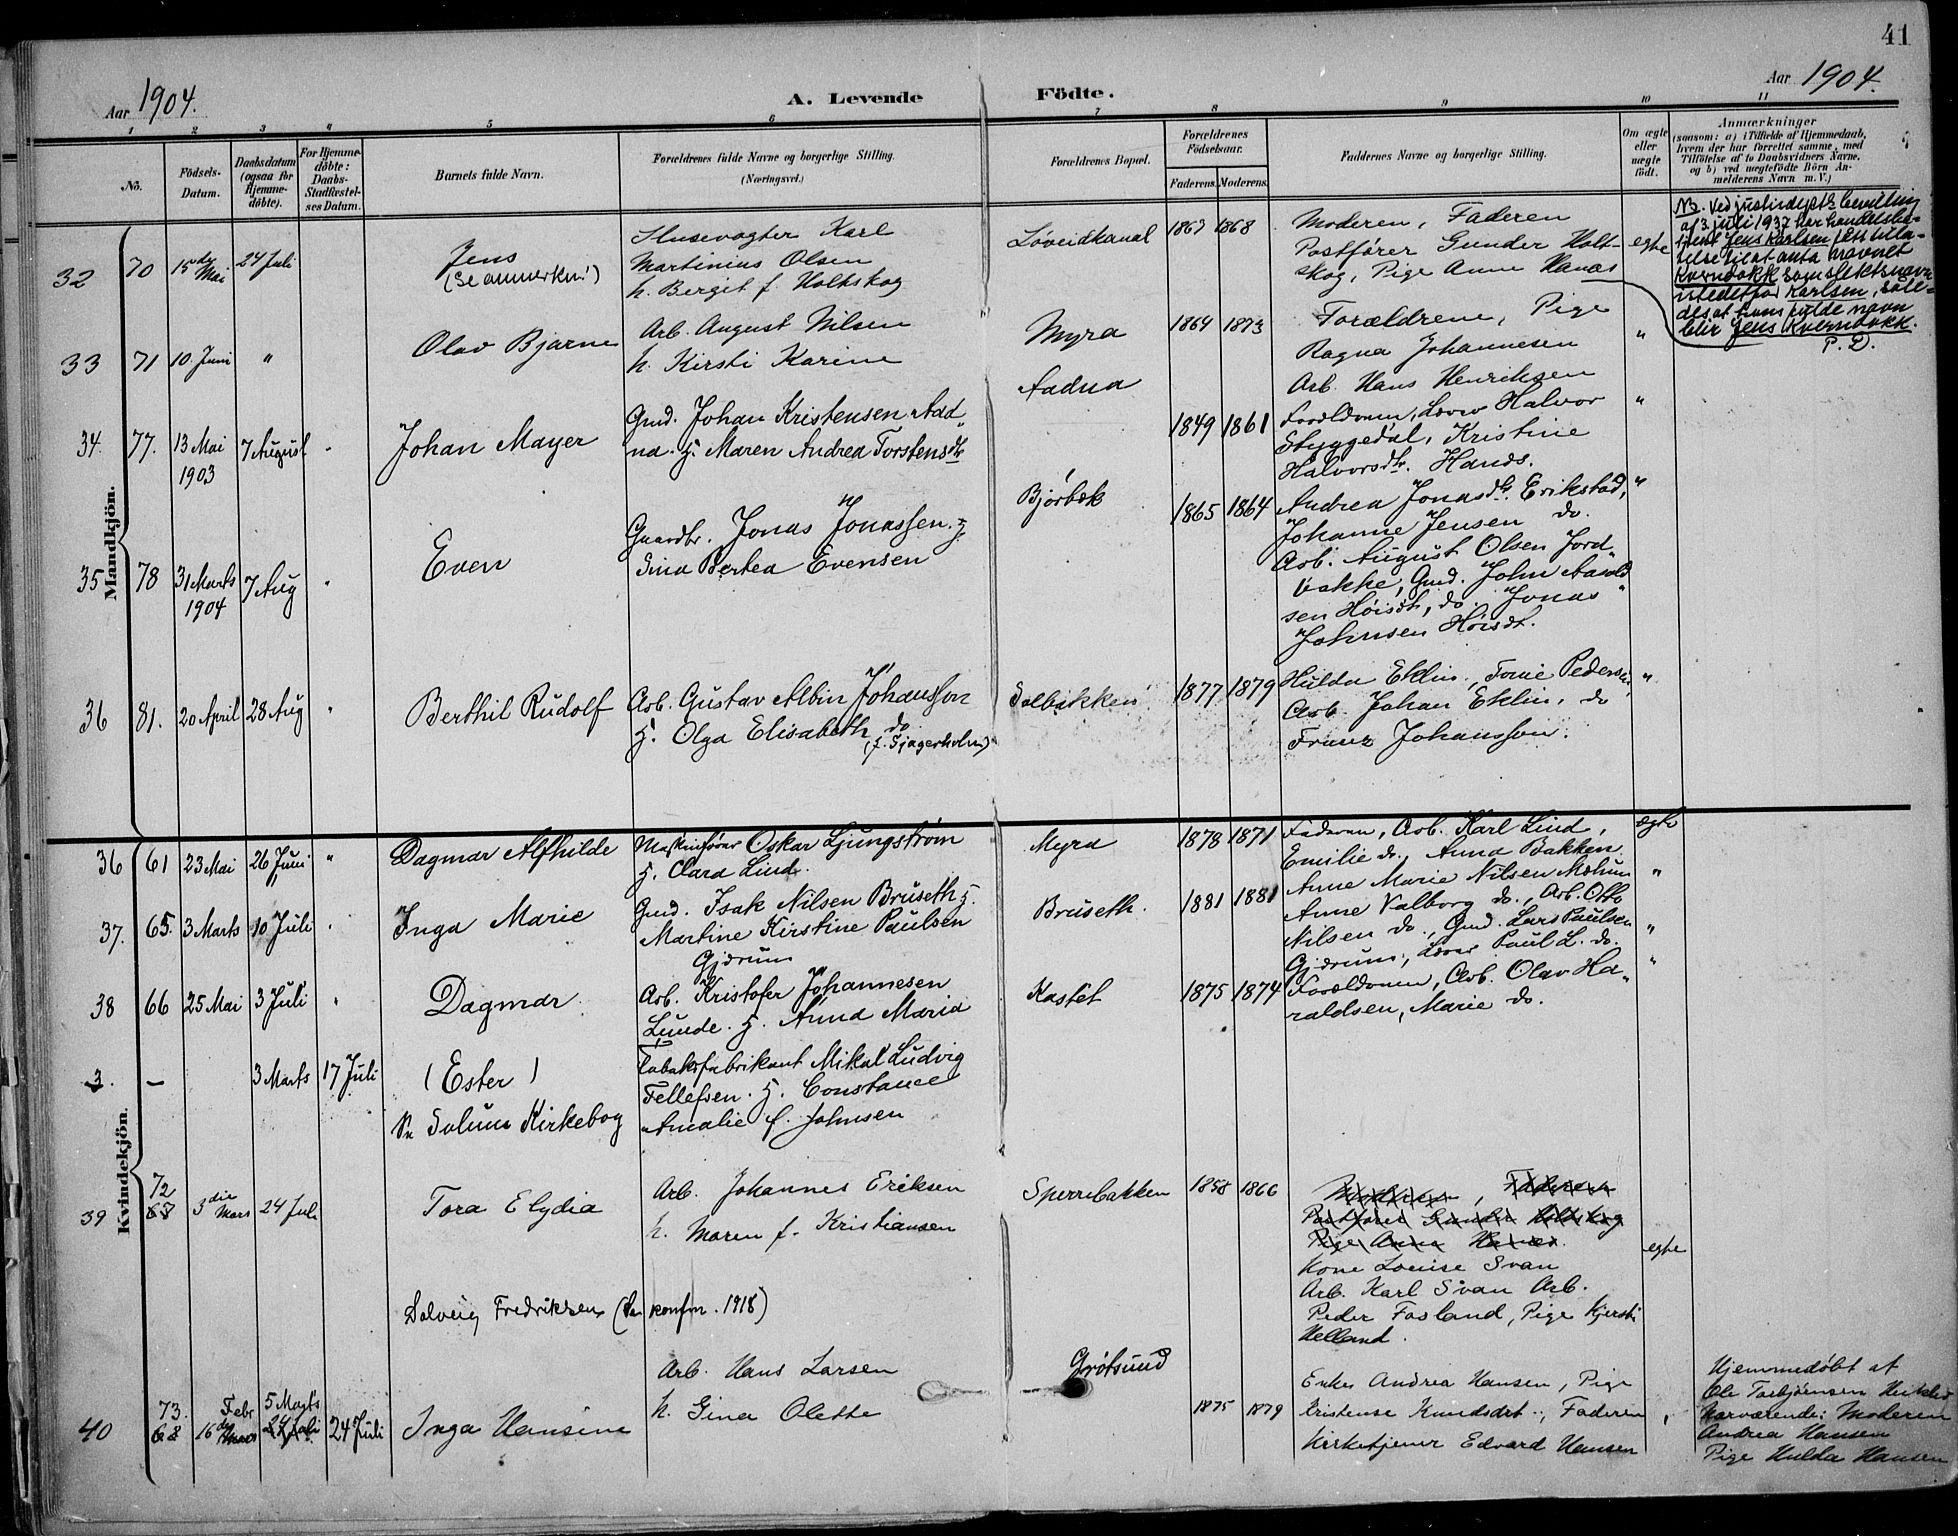 41
Aar 1904.
A. Levende Födte.
Aar 1904.
1 2 3 4 5 6 7 8 9 10 11
No.
Födsels-
Datum.
Daabsdatum
(ogsaa for
Hjemme-
döbte).
For Hjemme-
döbte:
Daabs-
Stadfæstel-
ses Datum.
Barnets fulde Navn.
Forældrenes fulde Navne og borgerlige Stilling.
(Næringsvei.)
Forældrenes Bopæl.
Forældrenes
Födselsaar.
Faderens. Moderens.
Faddernes Navne og borgerlige Stilling.
Om ægte
eller
uægte
födt.
Anmærkninger
(saasom: a) i Tilfælde af Hjemmedaab,
hvem der har forrettet samme, med
Tilföielse af to Daabsvidners Navne,
og b) ved uægtefödte Börn An-
melderens Navn m. V.)
Mandkjön.
32 70 15de Mai 24 Juli
Jens
(Se anmerkn!)
Slusevogter Karl
Martinius Olsen
h. Berget f. Holtskog
Løveidkanal 1863 1868
Moderen, Faderen
Postfører Gunder Holt-
skog, Pige Anne Hanås
egte
NB. Ved justisdepts bevilling
af 3 juli 1937 har handelsbe-
tjent Jens Karlsen fått tilla-
telse til at anta navnet
Kverndokk som slektsnavn
istedetfor Karlsen, såle-
des at hans fulde navn
blir Jens Kverndokk.
P. D.
33 71 10. Juni "
Olav Bjarne
Arb. August Nilsen
h. Kirsti Karine
Myra 1864 1873
Forældrene, Pige
Ragna Johannesen
Arb. Hans Henriksen
"
34. 77. 13 Mai 1903 7 August "
Johan Mayer
Gmd. Johan Kristensen Aad-
na. H. Maren Andrea Torstensdtr
Aadna 1849 1861
Forældrene, Lærer Halvor
Styggedal, Kristine
Halvorsdtr. Hanås.
"
35 78 31 Marts 1904 7 Aug "
Even
Gaardbr. Jonas Jonassen. H.
Gina Bertea Evensen
Bjørbæk 1865 1864
Andrea Jonasdtr. Erikstad,
Johanne Jensen do.
Arb. August Olsen Jord-
bakke, Gmd. John Aasold
sen Høisdt, do. Jonas
Johnsen Høisdt.
"
36 81. 20 April 28 Aug "
Berthil Rudolf
Arb. Gustav Albin Johansson
H. Olga Elisabeth do
(f. Sjagerholm)
Solbakken 1877 1879
Hulda Eklin, Tomie Pedersen,
Arb. Johan Eklin, do
Franz Johansson.
"
Kvindekjön.
36 61 23 Mai 26 Juni "
Dagmar Alfhilde
Maskinfører Oskar Ljungstrøm
H. Clara Lind.
Myra 1878 1871
Faderen, Arb. Karl Lind,
Emilie do, Anna Bakken
ægte
37. 65. 3 Marts 10 Juli "
Inga Marie
Gmd. Isak Nilsen Bruseth H.
Martine Kirstine Paulsen
Gjærum
Bruseth. 1881 1881
Anne Marie Nilsen Mælum
Anne Valborg do., Arb. Otto
Nilsen do., Gmd. Lars Paulsen
Gjærum, Lærer Paul L. do.
"
38 66 25 Mai 3 Juli "
Dagmar
Arb. Kristofer Johannesen
Lunde. H. Anna Maria
Kastet 1875 1874
Forældrene, Arb. Olav Ha-
raldsen, Marie do.
"
3. — 3 Marts 17 Juli
(Ester)
Se Solum Kirkebog
Tobaksfabrikant Mikal Ludvig
Tellefsen. H. Constance
Amalie f. Johnsen
39 72 67 3die Mars 24 Juli
Tora Elydia
Arb. Johannes Eriksen
h. Maren f. Kristiansen
Sperrebakken 1858 1866
Moderen, Faderen
Postfører Gunder Holtskog
Pige Anne Hanås.
Kone Louise Svan
Arb. Karl Svan Arb.
Peder Fosland, Pige Kjersti
Helland.
egte
Solveig Fredriksen (Se konfm. 1918)
40 73. 68 Febr 16de Mars 5 Marts 24 Juli 24 Juli
Inga Hansine
Arb. Hans Larsen
h. Gina Olette
Grøtsund 1875 1879
Enke Andrea Hansen, Pige
Kristense Knudsdtr., Faderen
Kirketjener Edvard Hansen
"
Hjemmedøbt af
Ole Torbjørnsen
Nærværende: Moderen
Andrea Hansen
Pige Hulda Hansen